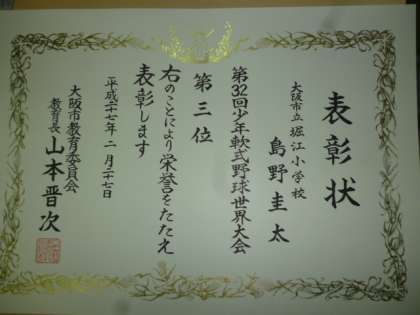 表彰状
大阪市立堀江小学校
島野圭太
第32回少年軟式野球世界大会
第三位
右のことにより栄誉をたたえ
表彰します
平成二十七年二月二十七日
大阪市教育委員会
教育長 山本晋次